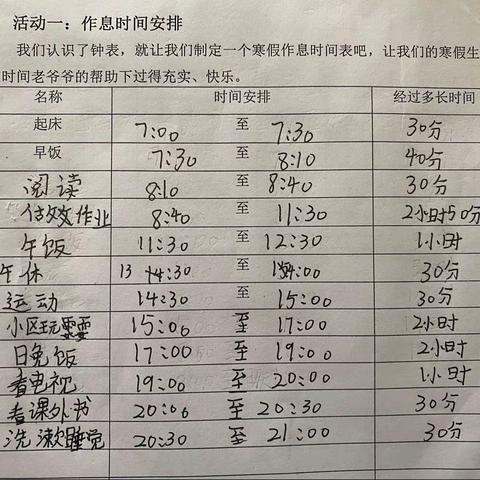 活动一：作息时间安排
我们认识了钟表，就让我们制定一个寒假作息时间表吧，让我们的寒假生
时间老爷爷的帮助下过得充实、快乐。
名称 时间安排 经过多长时间
起床 7:00 至 7:30 30分
早饭 7:30 至 8:10 40分
阅读 8:10 至 8:40 30分
做作业 8:40 至 11:30 2小时50分
午饭 11:30 至 12:30 1小时
午休 至 30分
运动 14:30 至 15:00 30分
小区玩耍 15:00 至 17:00 2小时
晚饭 17:00 至 19:00 2小时
看电视 19:00 至 20:00 1小时
看课外书 20:00 至 20:30 30分
洗漱睡觉 20:30 至 21:00 30分